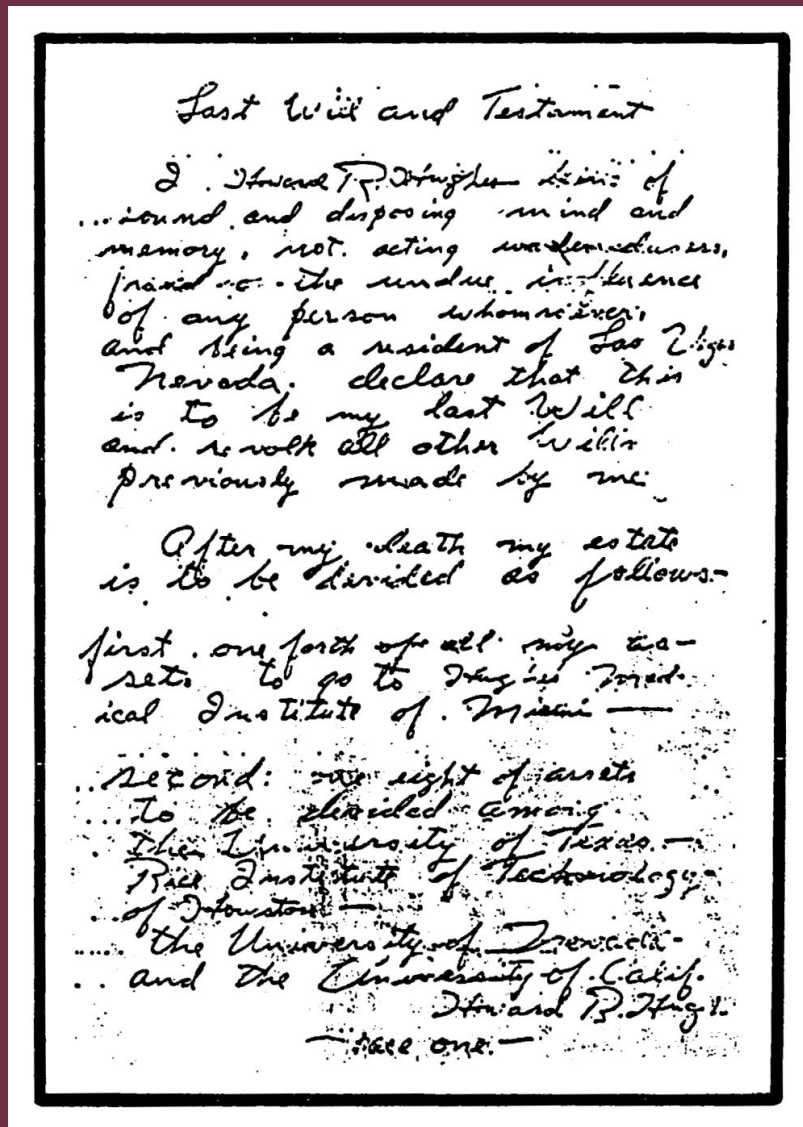 Last Will and Testament
I Howard R. Hughes being of
sound and disposing mind and
memory, not acting under duress,
fraud or the undue influence
of any person whomsoever,
and being a resident of Las Vegas
Nevada. declare that this
is to be my last Will
and revolk all other Wills
previously made by me
After my death my estate
is to be devided as follows-
first. one forth of all my as-
sets to go to Hughes Med-
ical Institute of Miami —
second: one eight of assets
to be devided among
the University of Texas —
Rice Institute of Technology
of Houston —
the University of Nevada -
and the University of Calif.
Howard R. Hughes
— page one. —